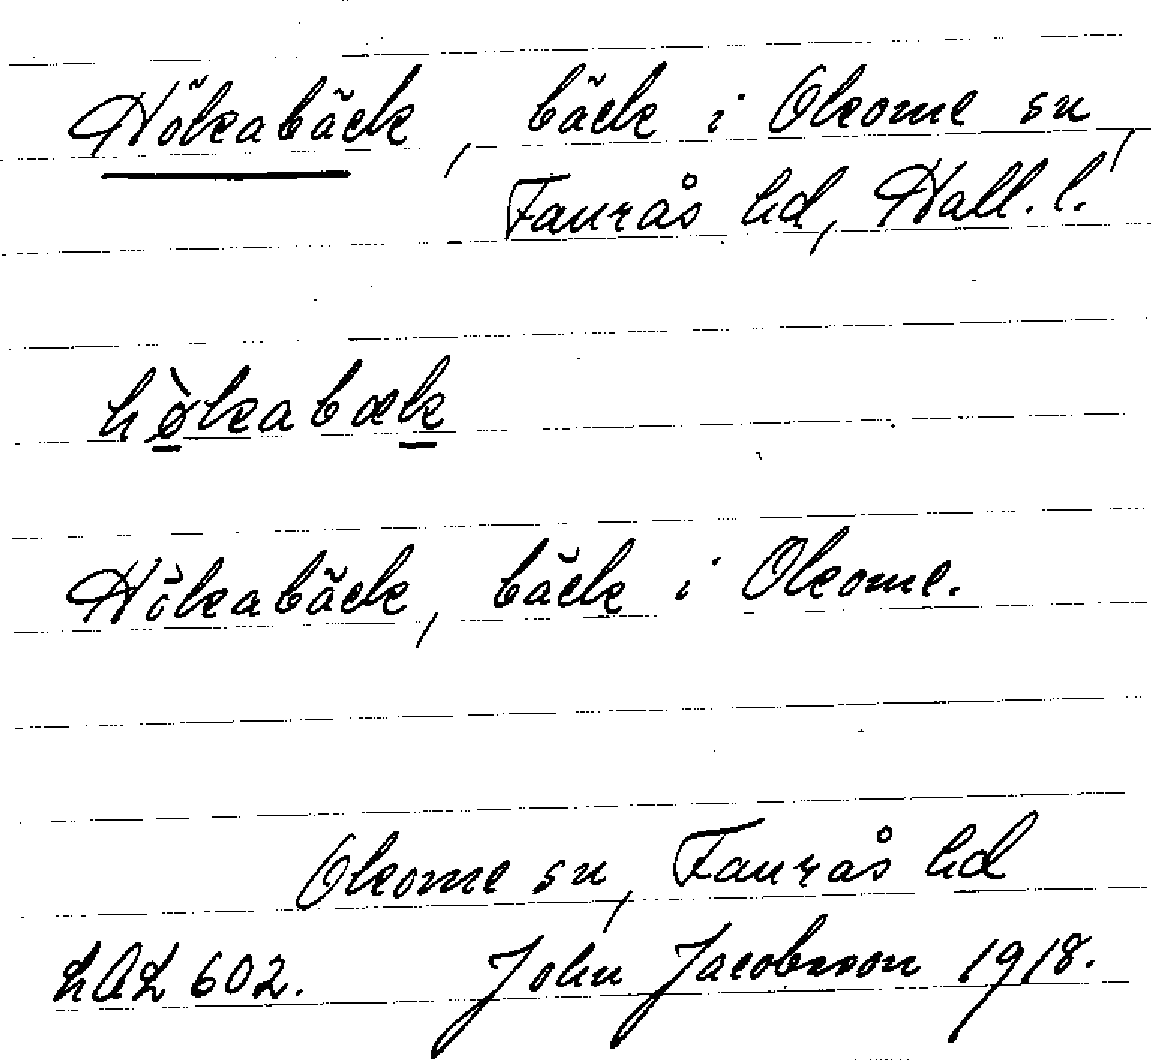 Hökabäck, bäck i Okome sn,
Faurås hd, Hall. l.
hø̀kabæk
Hökabäck, bäck i Okome.
Okome sn, Faurås hd
LAL 602. John Jacobsson 1918.